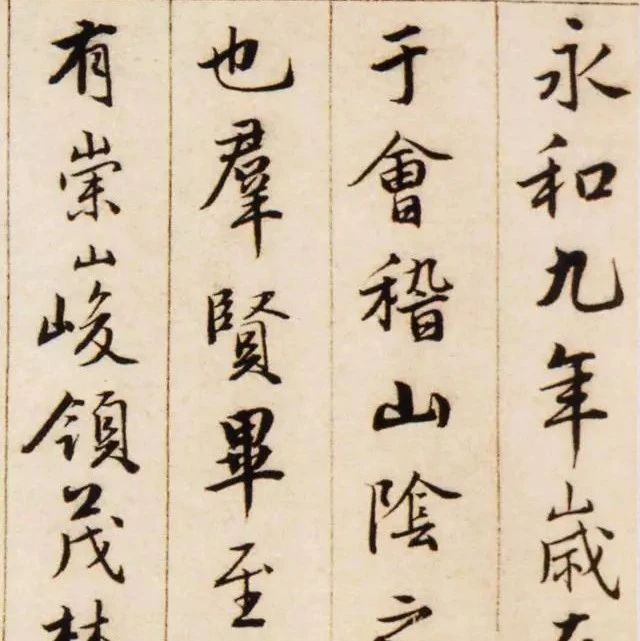 永和九年歲在
于會稽山陰之
也羣賢畢至
有崇山峻領茂林